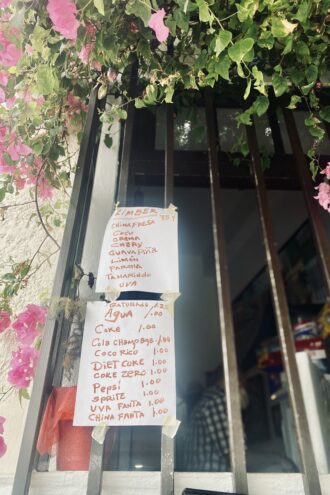 LIMBER
CHINA FRESA
COCO
CREMA
GUAVA PIÑA
LIMÓN
PARCHA
TAMARINDO
UVA
AGUA 1.00
COKE 1.00
COLA CHAMPAGE 1.00
COCO RICO 1.00
DIET COKE 1.00
COKE ZERO 1.00
PEPSI 1.00
SPRITE 1.00
UVA FANTA 1.00
CHINA FANTA 1.00